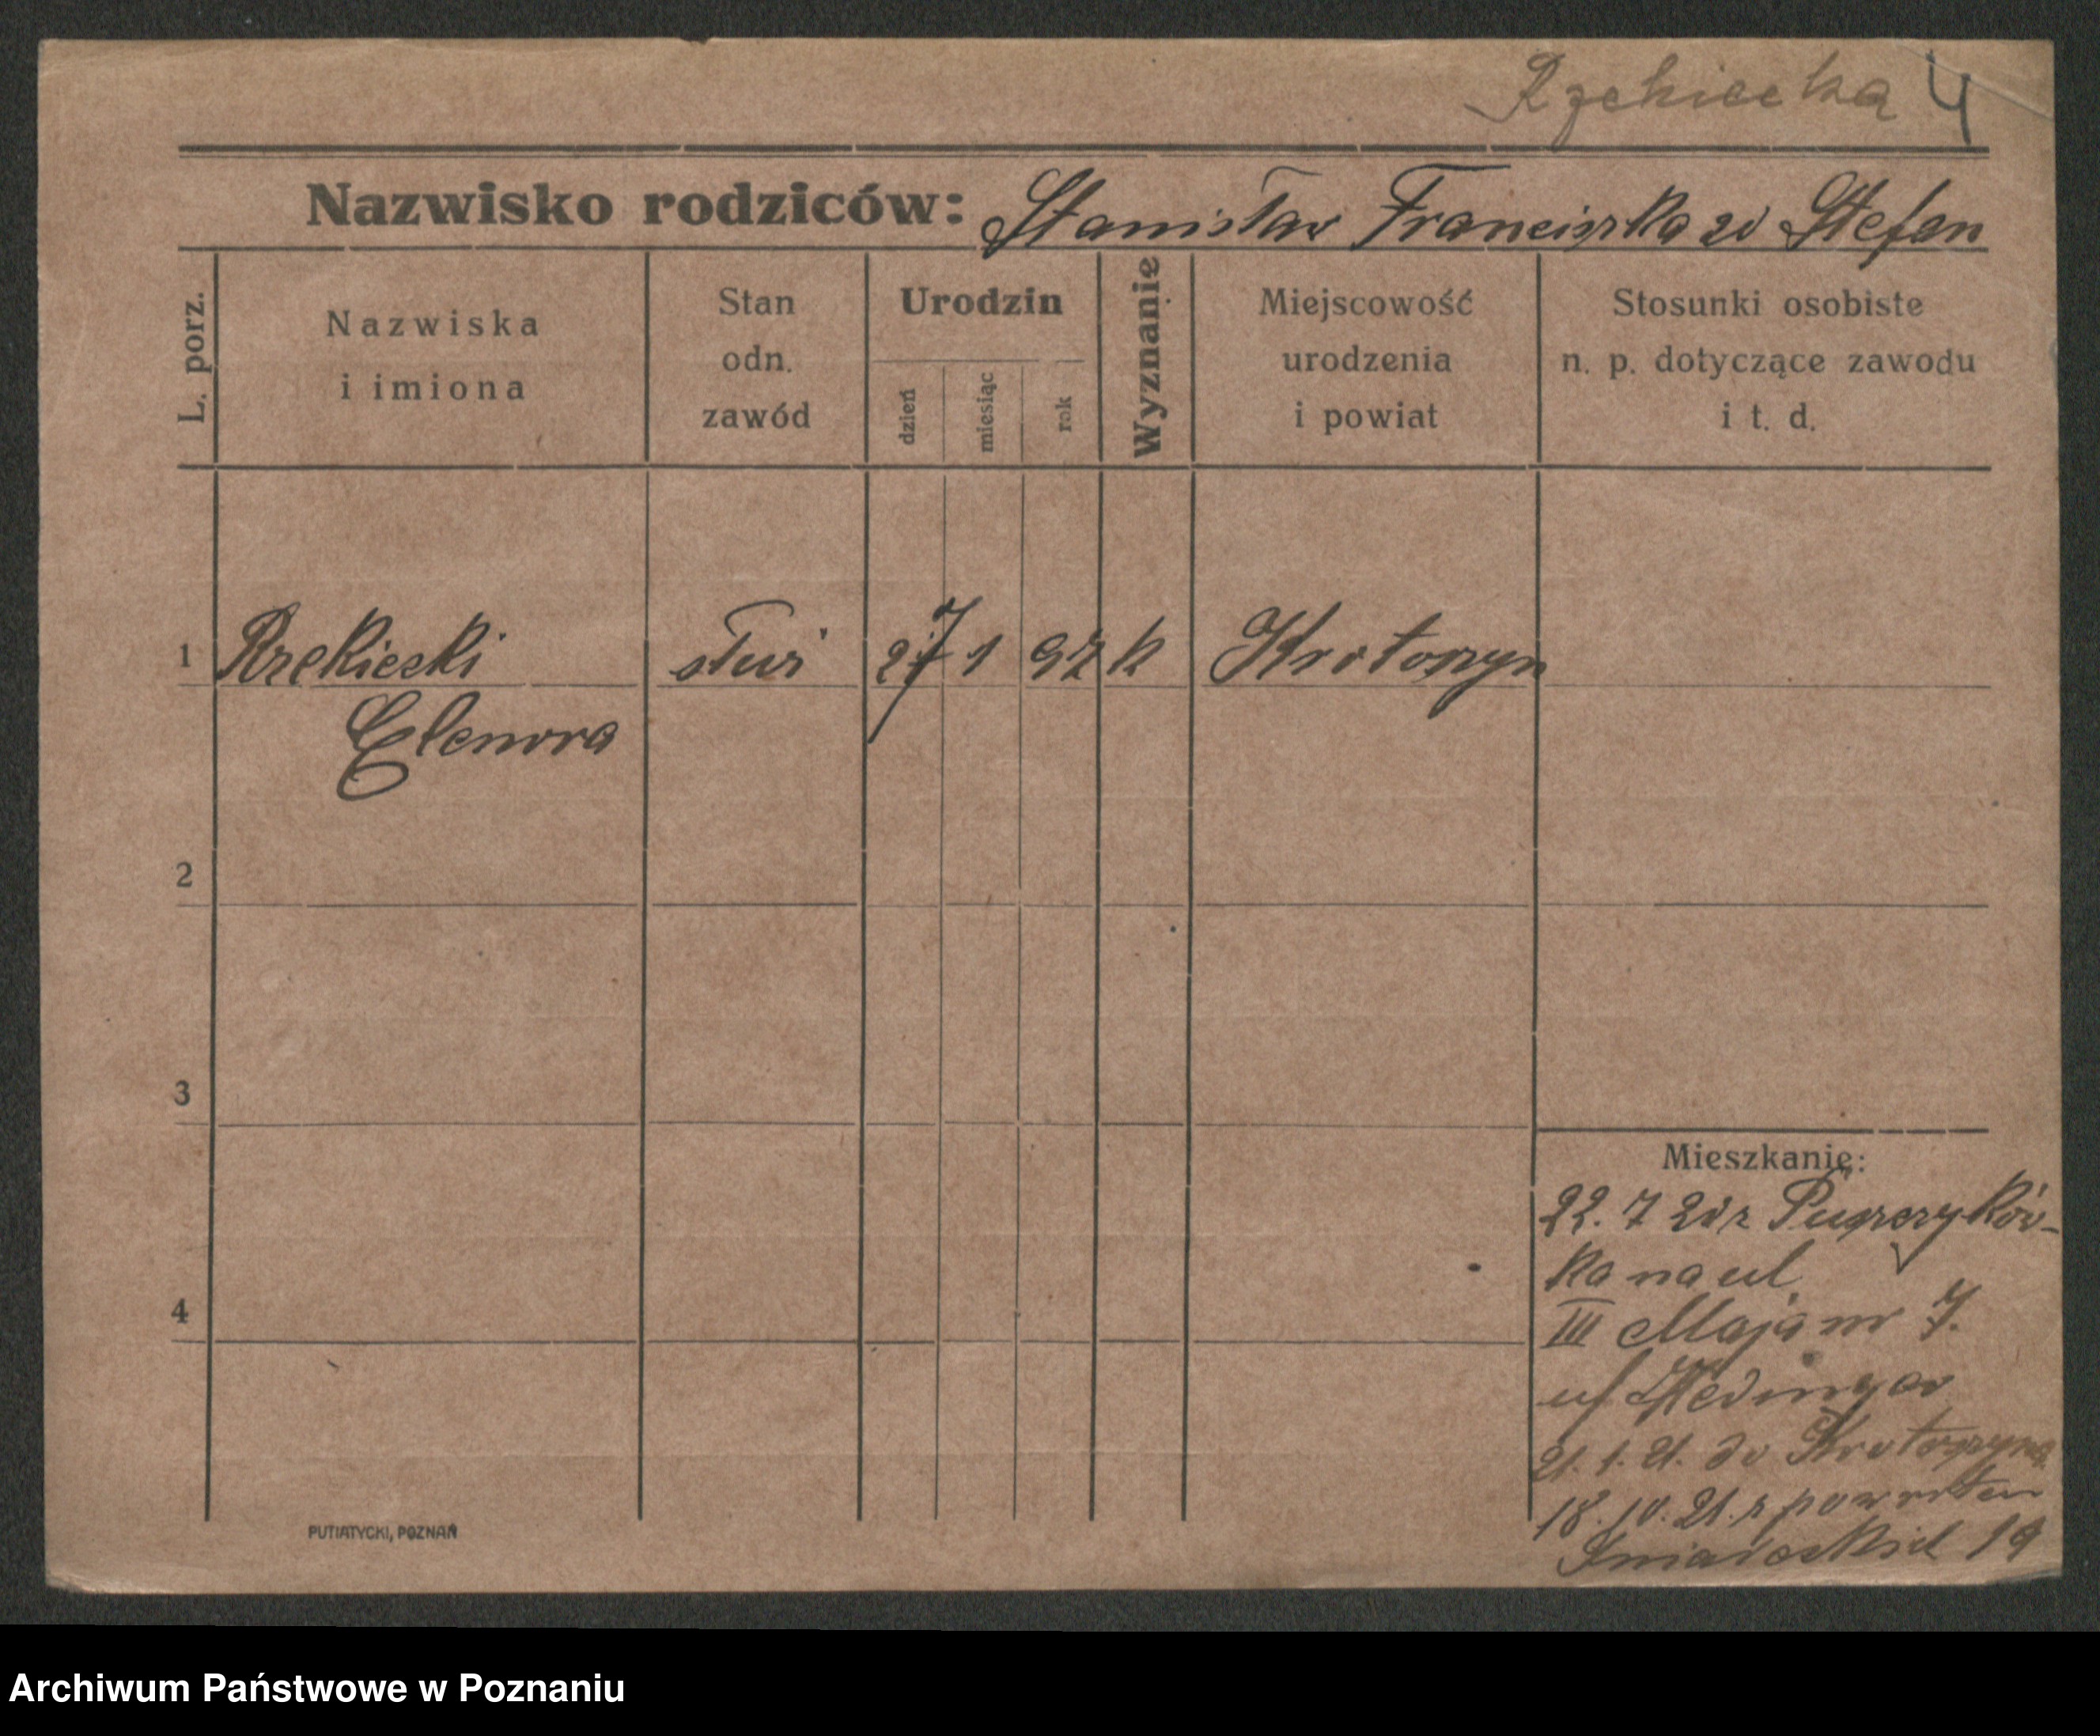 Rzekiecka 4
Nazwisko rodziców: Stanisław Franciszka zd Stefan
L. porz.
Nazwiska
i imiona
Stan
odn.
zawód
Urodzin
dzień
miesiąc
rok
Wyznanie
Miejscowość
urodzenia
i powiat
Stosunki osobiste
n. p. dotyczące zawodu
i t. d.
1 Rzekiecki służ 27 1 92 k Krotoszyn
Elenora
2
3
4
Mieszkanie:
22. 7 20 z Puszczyków-
ka na ul
III Maja nr 7.
u/
21. 1. 21. do Krotoszyna
18. 10. 21. z powrotem
Śniadeckich 19
PUTIATYCKI, POZNAŃ
Archiwum Państwowe w Poznaniu